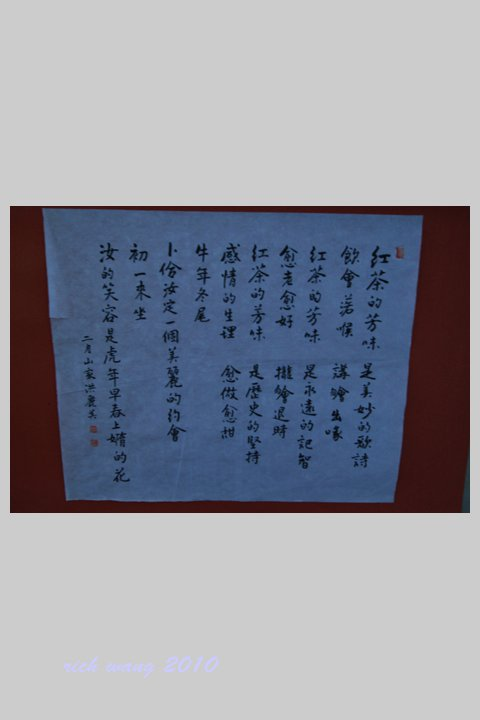 紅茶的芳味 是美妙的歌詩
飲會落喉 講繪出喙
紅茶的芳味 是永遠的記智
愈老愈好 攏繪退時
紅茶的芳味 是歷史的堅持
感情的生理 愈做愈甜
牛年冬尾
卜佮汝定一個美麗的約會
初一來坐
汝的笑容是虎年早春上媠的花
二月山家洪麗美
rich wang 2010